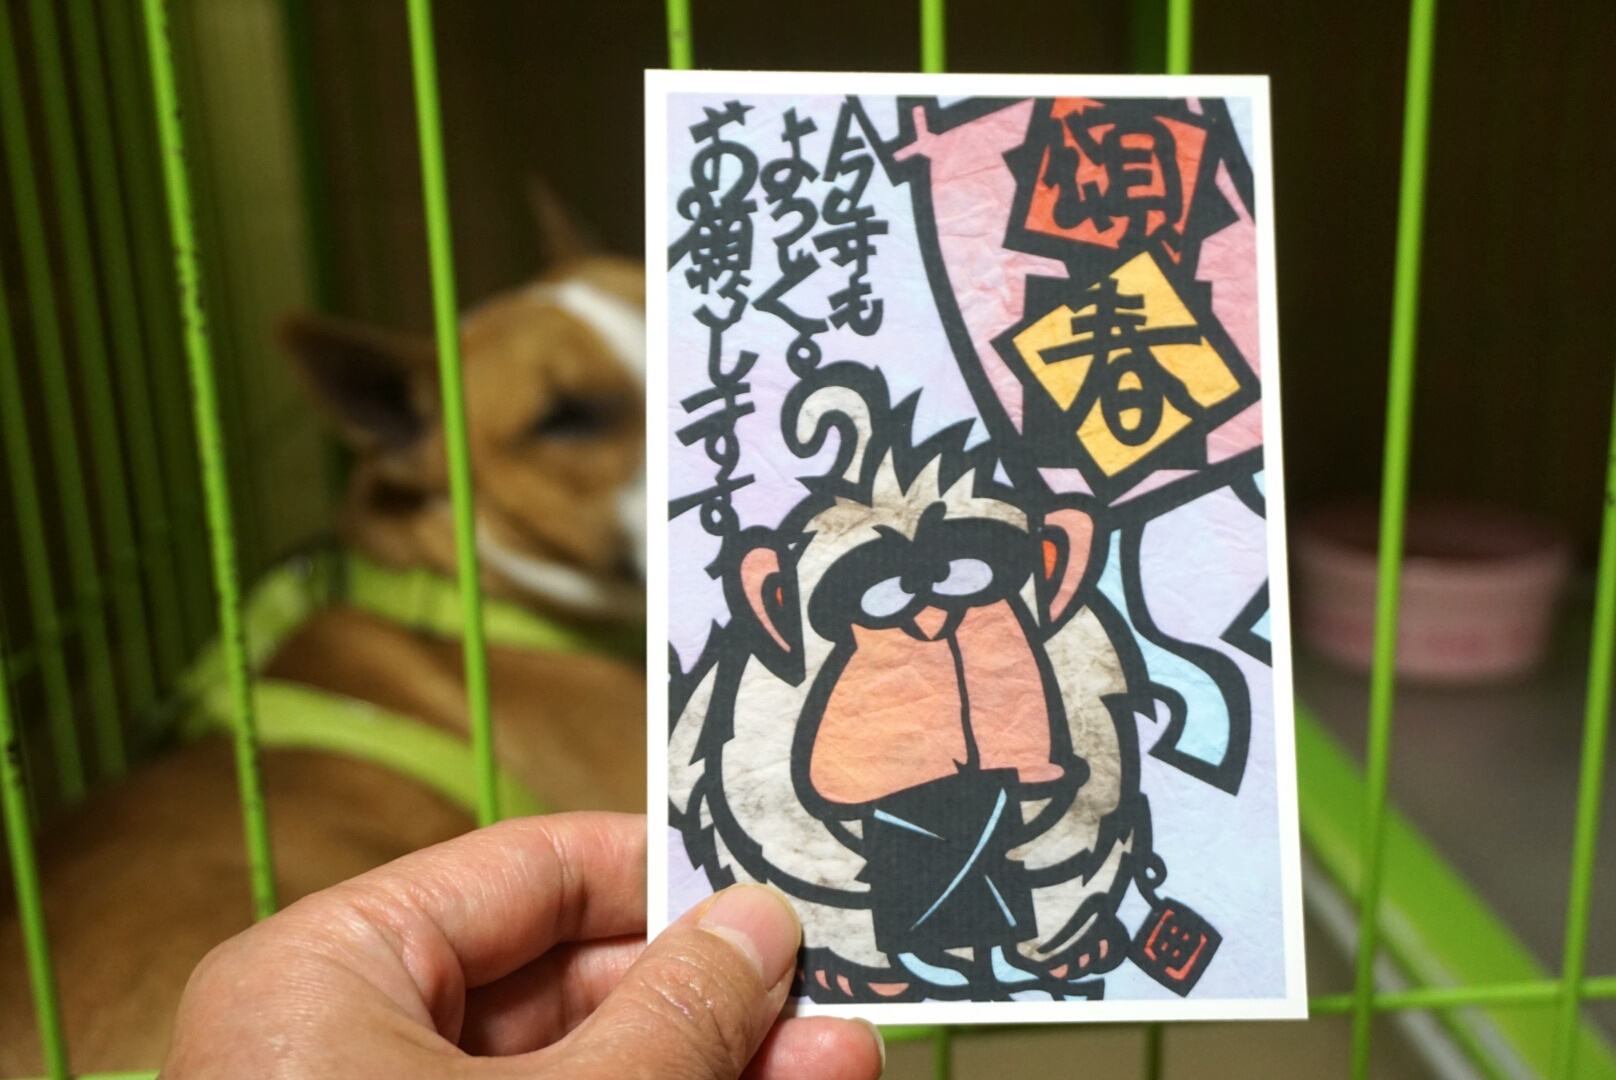 頌春
今年も
よろしく。
お願いします